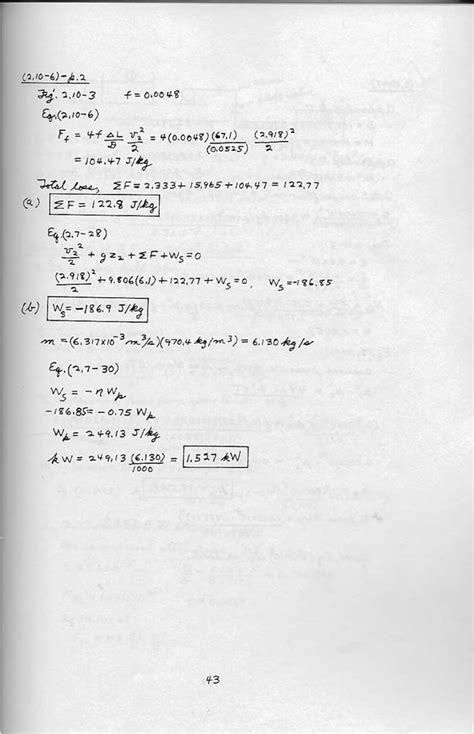 (2.10-6)-p.2
Fig. 2.10-3 f = 0.0048
Eq.(2.10-6)
F_f = 4f ΔL/D v₂²/2 = 4(0.0048)(67.1)/(0.0525) (2.918)²/2
= 104.47 J/kg
Total loss, ΣF = 2.333+15.965+104.47 = 122.77
(a) ΣF = 122.8 J/kg
Eq.(2.7-28)
v₂²/2 + gz₂ + ΣF + W_S = 0
(2.918)²/2 + 9.806(6.1) + 122.77 + W_S = 0, W_S = -186.85
(b) W_S = -186.9 J/kg
m = (6.317x10⁻³ m³/s)(970.4 kg/m³) = 6.130 kg/s
Eq.(2.7-30)
W_S = -η W_p
-186.85 = -0.75 W_p
W_p = 249.13 J/kg
kW = 249.13 (6.130)/1000 = 1.527 kW
43